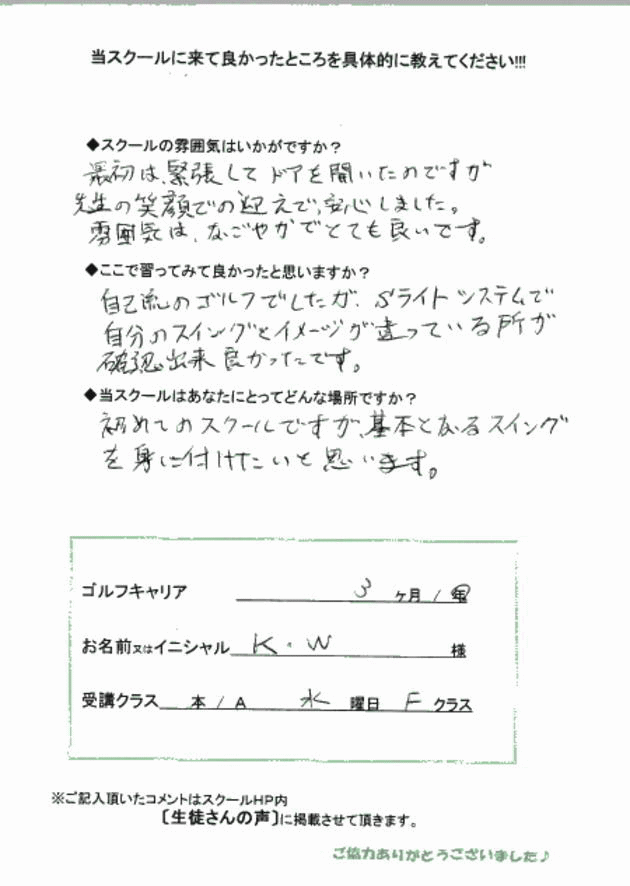 当スクールに来て良かったところを具体的に教えてください!!!
◆スクールの雰囲気はいかがですか？
最初は、緊張してドアを開いたのですが
先生の笑顔での迎えで、安心しました。
雰囲気は、なごやかでとても良いです。
◆ここで習ってみて良かったと思いますか？
自己流のゴルフでしたが、Sライトシステムで
自分のスイングとイメージが違っている所が
確認出来良かったです。
◆当スクールはあなたにとってどんな場所ですか？
初めてのスクールですが、基本となるスイング
を身に付けたいと思います。
ゴルフキャリア 3 ヶ月 / 年
お名前又はイニシャル K・W 様
受講クラス 本 / A 水 曜日 F クラス
※ご記入頂いたコメントはスクールHP内
〔生徒さんの声〕に掲載させて頂きます。
ご協力ありがとうございました♪